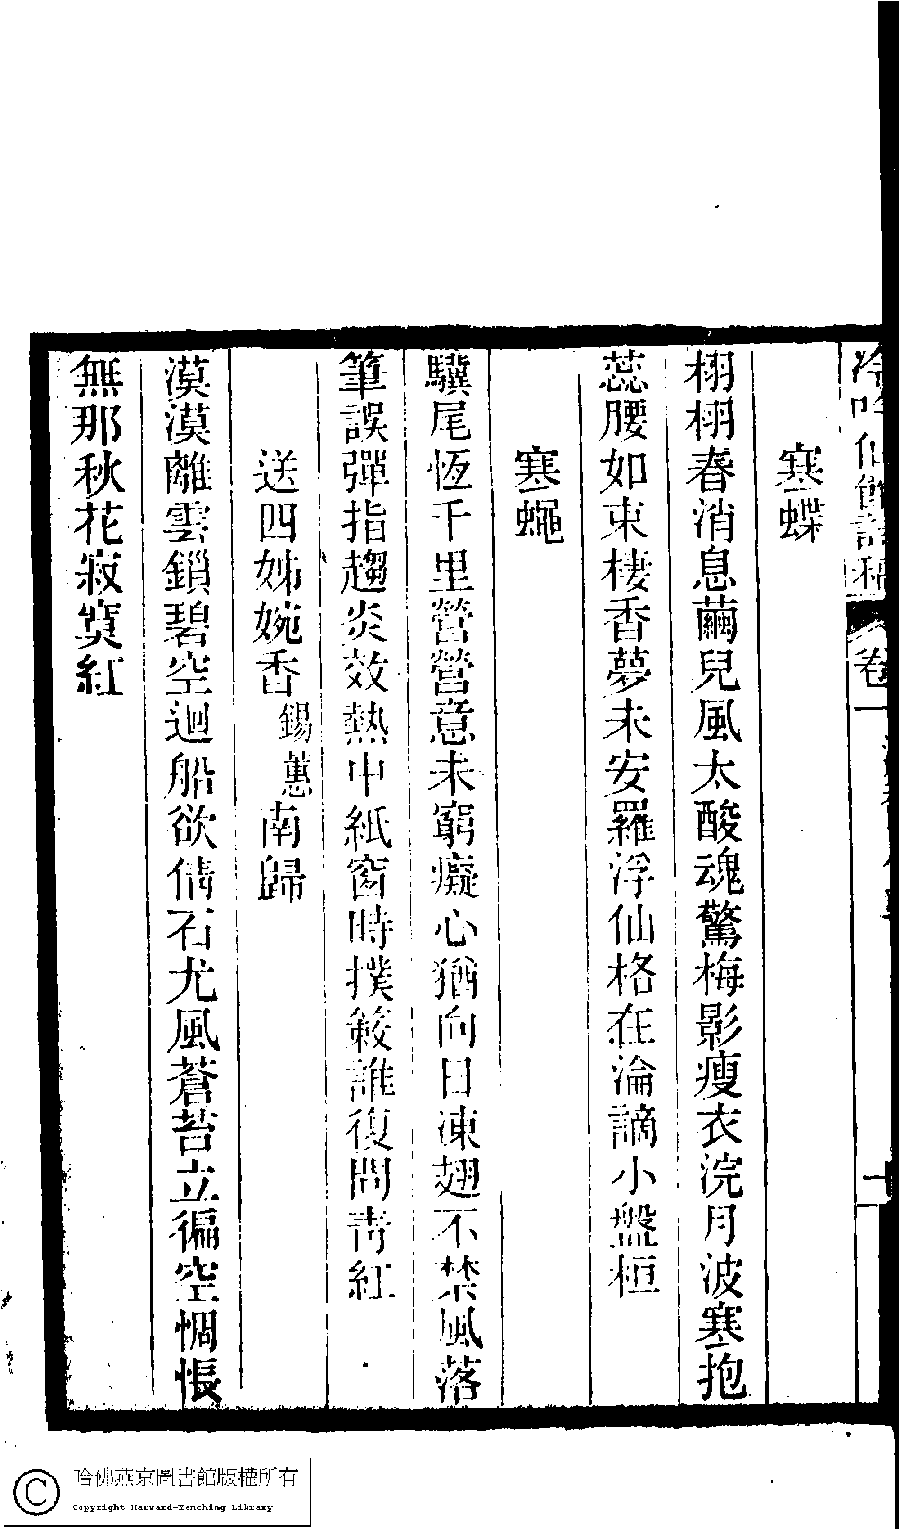 冷吟仙館詩稿 卷一 十
寒蝶
栩栩春消息繭兒風太酸魂驚梅影瘦衣浣月波寒抱
蕊腰如束棲香夢未安羅浮仙格在淪謫小盤桓
寒蠅
驥尾恆千里營營意未窮癡心猶向日凍翅不禁風落
筆誤彈指趨炎效熱中紙窗時撲簌誰復問青紅
送四姊婉香錫蕙南歸
漠漠離雲鎖碧空迴船欲倩石尤風蒼苔立徧空惆悵
無那秋花寂寞紅
哈佛燕京圖書館版權所有
Copyright Harvard-Yenching Library